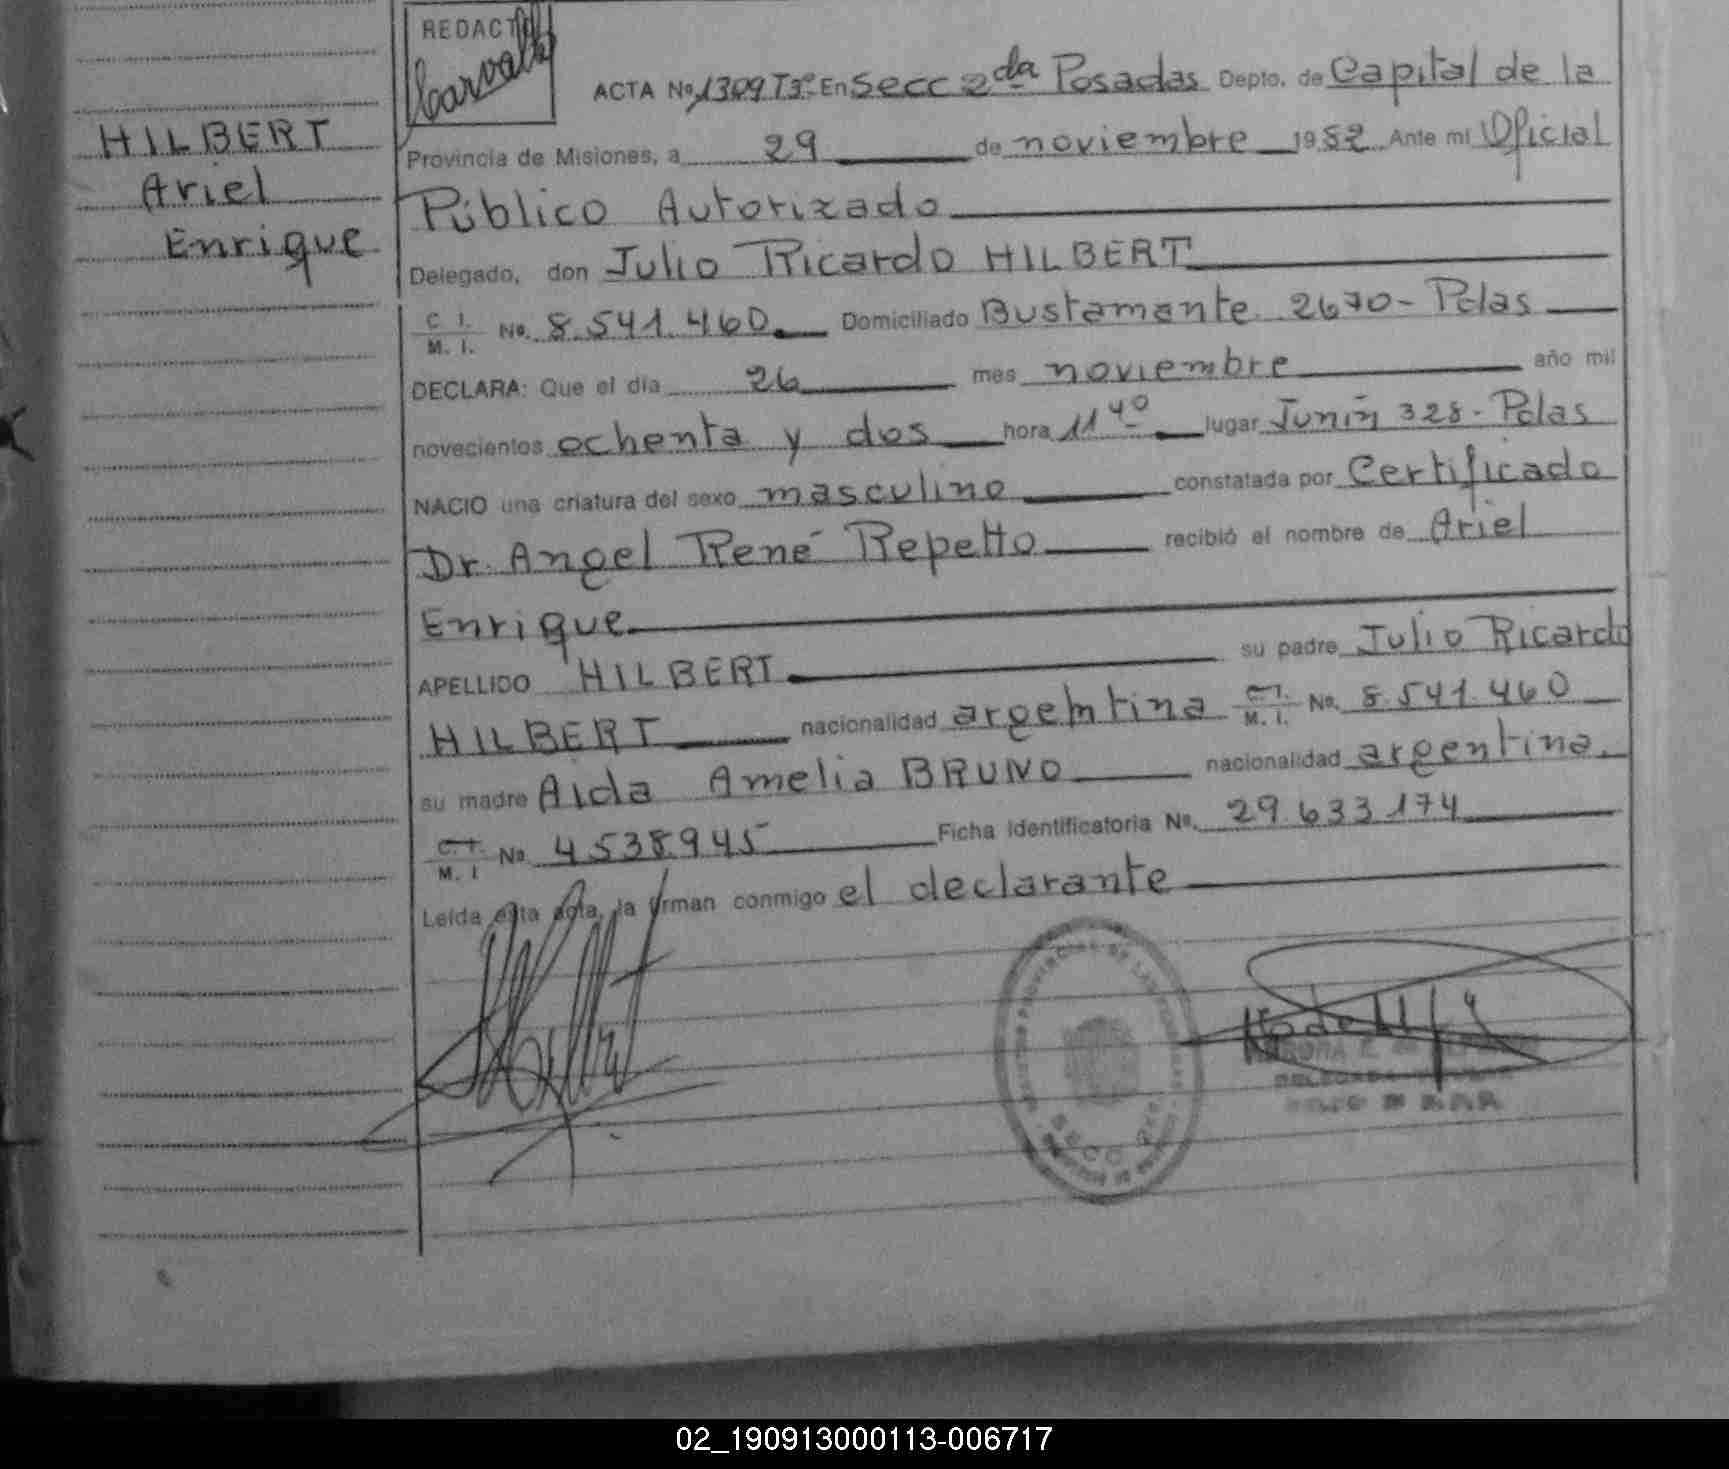 HILBERT
Ariel
Enrique
REDACTO
Carvall
ACTA No 1309 T3º En Secc 2da Posadas Depto. de Capital de la
Provincia de Misiones, a 29 de noviembre 1982 Ante mi Oficial
Público Autorizado
Delegado, don Julio Ricardo HILBERT
C. I. M. I. No. 8.541.460 Domiciliado Bustamante 2670 - Pdas
DECLARA: Que el día 26 mes noviembre año mil
novecientos ochenta y dos hora 11 40 lugar Junín 328 - Pdas
NACIO una criatura del sexo masculino constatada por Certificado
Dr. Angel René Repetto recibió el nombre de Ariel
Enrique
APELLIDO HILBERT su padre Julio Ricardo
HILBERT nacionalidad argentina C.I. M. I. No. 8.541.460
su madre Aida Amelia BRUNO nacionalidad argentina.
C.I. M. I No 4538945 Ficha Identificatoria No. 29.633.174
Leída esta acta, la firman conmigo el declarante
02_190913000113-006717